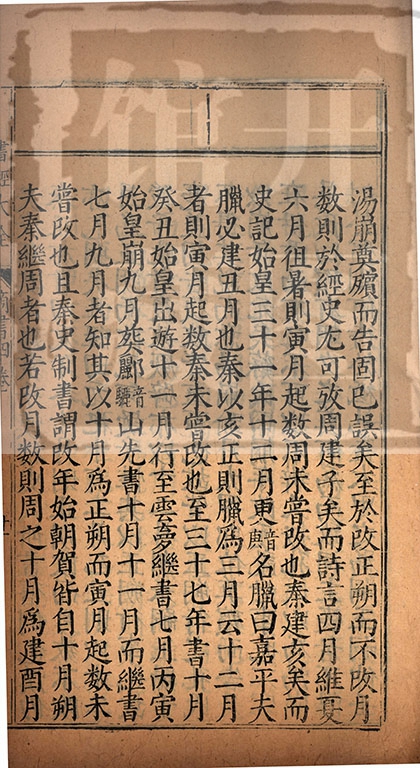 湯崩奠殯而告固已誤矣至於改正朔而不改月
數則於經史尤可攷周建子矣而詩言四月維夏
六月徂暑則寅月起數周未嘗改也秦建亥矣而
史記始皇三十一年十二月更音庚名臘曰嘉平夫
臘必建丑月也秦以亥正則臘爲三月云十二月
者則寅月起數秦未嘗改也至三十七年書十月
癸丑始皇出遊十一月行至雲夢繼書七月丙寅
始皇崩九月葬酈音驪山先書十月十一月而繼書
七月九月者知其以十月爲正朔而寅月起數未
嘗改也且秦史制書謂改年始朝賀皆自十月朔
夫秦繼周者也若改月數則周之十月爲建酉月
書經大全